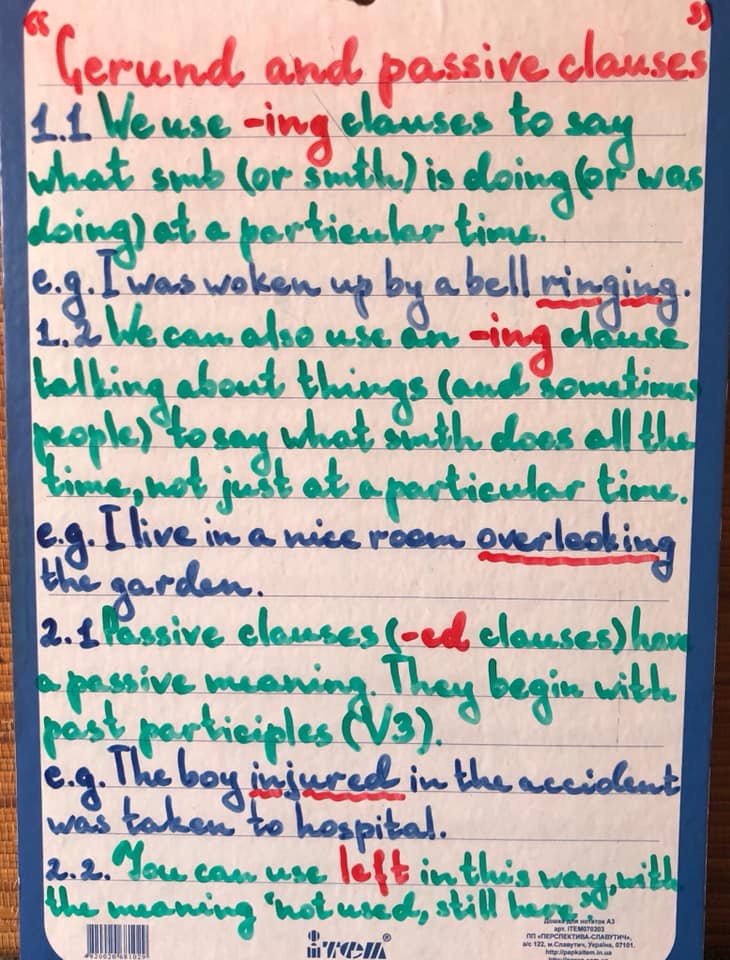 "Gerund and passive clauses"
1.1 We use -ing clauses to say
what smb (or smth) is doing (or was
doing) at a particular time.
e.g. I was woken up by a bell ringing.
1.2 We can also use an -ing clause
talking about things (and sometimes
people) to say what smth does all the
time, not just at a particular time.
e.g. I live in a nice room overlooking
the garden.
2.1 Passive clauses (-ed clauses) have
a passive meaning. They begin with
past participles (V3).
e.g. The boy injured in the accident
was taken to hospital.
2.2. You can use left in this way, with
the meaning "not used, still here".
Дошка для нотаток А3
арт. ITEM070203
ПП «ПЕРСПЕКТИВА-СЛАВУТИЧ»,
а/с 122, м.Славутич, Україна, 07101.
http://papkaitem.in.ua
item®